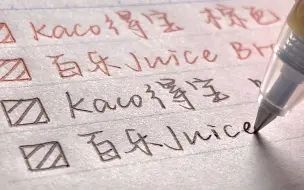 Kaco得宝 棕色
百乐Juice Br
Kaco得宝
百乐Juice